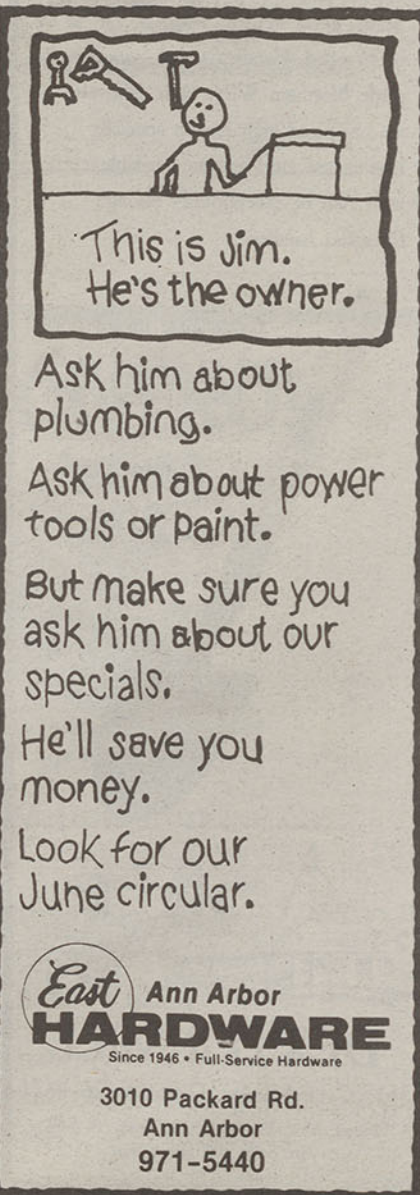 This is Jim.
He's the owner.
Ask him about
plumbing.
Ask him about power
tools or paint.
But make sure you
ask him about our
specials.
He'll save you
money.
Look for our
June circular.
East Ann Arbor
HARDWARE
Since 1946 • Full-Service Hardware
3010 Packard Rd.
Ann Arbor
971-5440